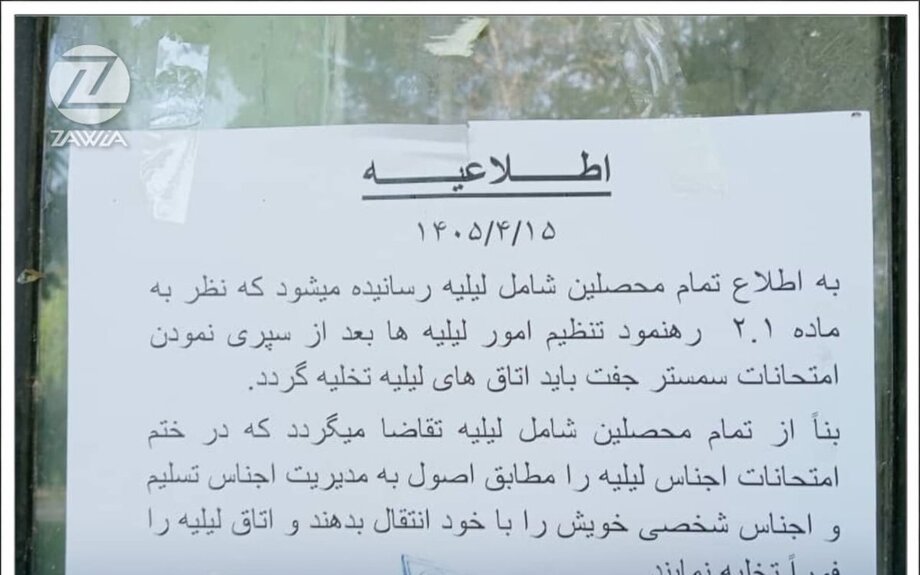 ZAWIA
اطلاعیه
۱۴۰۵/۴/۱۵
به اطلاع تمام محصلین شامل لیلیه رسانیده میشود که نظر به
ماده ۲.۱ رهنمود تنظیم امور لیلیه ها بعد از سپری نمودن
امتحانات سمستر جفت باید اتاق های لیلیه تخلیه گردد.
بناً از تمام محصلین شامل لیلیه تقاضا میگردد که در ختم
امتحانات اجناس لیلیه را مطابق اصول به مدیریت اجناس تسلیم
و اجناس شخصی خویش را با خود انتقال بدهند و اتاق لیلیه را
فوراً تخلیه نمایند